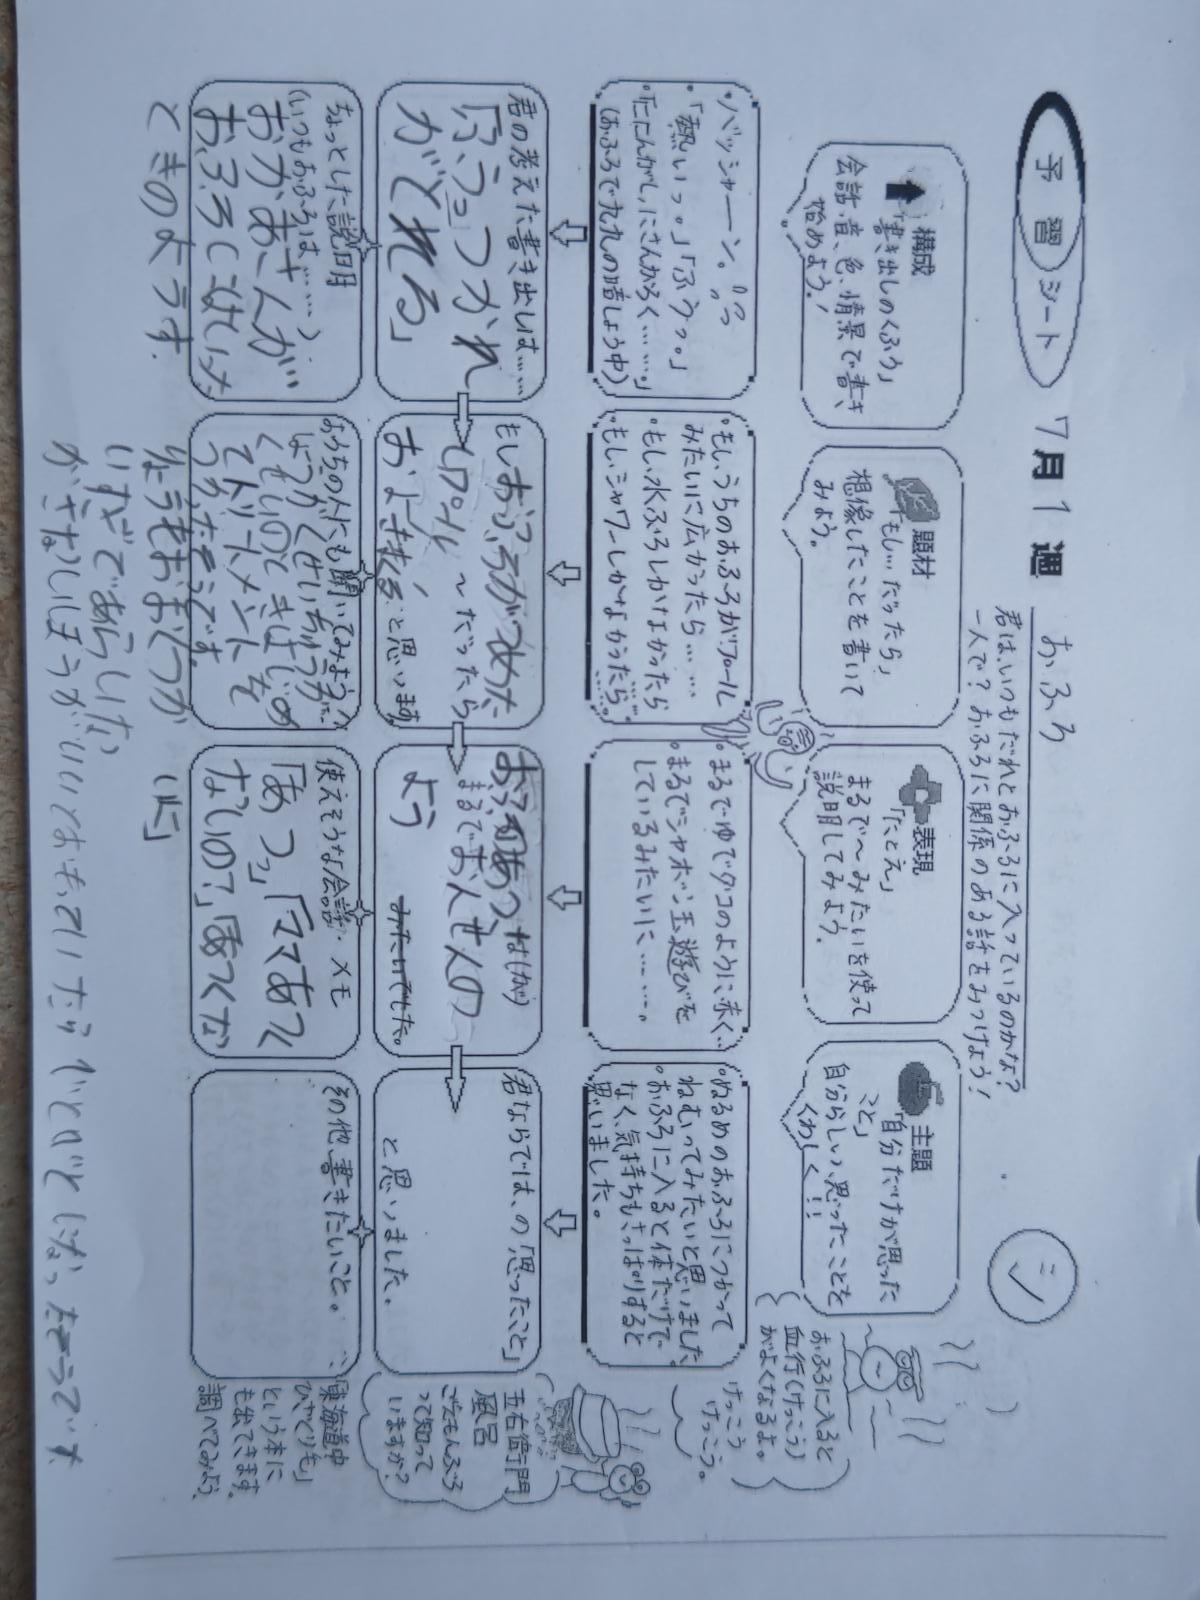 予習シート
7月1週
おふろ
君は、いつもだれとおふろに入っているのかな?
一人で?おふろに関係のある話をみつけよう!
ミ
構成
「書き出しのくふう」
会話、音、色、情景で書き
始めよう!
題材
「もし…だったら」
想像したことを書いて
みよう。
表現
「たとえ」
まるで〜みたいを使って
説明してみよう。
主題
「自分だけが思った
こと」
自分らしい、思ったことを
くわしく!!
おふろに入ると
血行(けっこう)
がよくなるよ。
けっこう
けっこう。
・バッシャーン。
・「熱いっ。」「ふうっ。」
・「ににんがし、にさんがろく……。」
(おふろで九九の暗しょう中)
・もし、うちのおふろがプール
みたいに広かったら……
・もし水ぶろしかなかったら
・もしシャワーしかなかったら…
・まるでゆでダコのように赤く…
・まるでシャボン玉遊びを
しているみたいに……。
・ぬるめのおふろにつかって
ねむってみたいと思いました
・おふろに入ると体だけで
なく、気持ちもさっぱりすると
思いました。
君の考えた書き出しは……
「ふうつかれ
がとれる」
もしおふろがつめた
いプール
〜だったら
およぎまくる
と思います。
まるでおんせんの
よう
みたいでした。
君ならでは、の「思ったこと」
と思いました。
五右衛門
風呂
ごえもんぶろ
って知って
いますか?
ちょっとした説明
(いつもおふろは……)
おかあさんが
おふろに入った
ときのようす
おうちの人にも聞いてみよう
トリートメントを
使えそうな会話・メモ
「あつっ」「ママあつく
ないの?」「あつくな
い」
その他、書きたいこと。
「東海道中
ひざくりも」
という本に
も出てきます。
調べてみよう